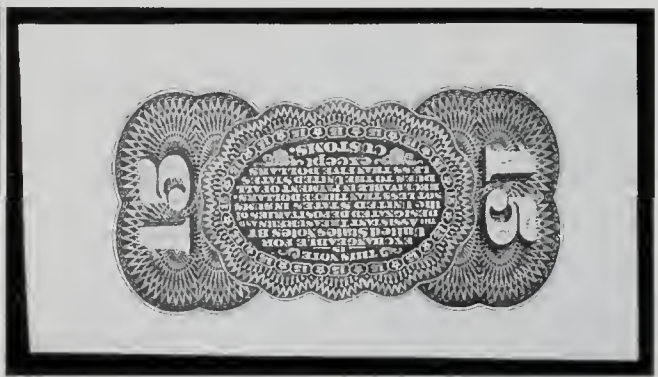 15
THIS NOTE
IS
EXCHANGEABLE FOR
United States Notes BY
THE ASSISTANT TREASURERS AND
DESIGNATED DEPOSITARIES of
the UNITED STATES IN SUMS
NOT LESS THAN THREE DOLLARS
RECEIVABLE IN PAYMENT OF ALL
DUES TO THE UNITED STATES
LESS THAN FIVE DOLLARS
except
CUSTOMS.
15